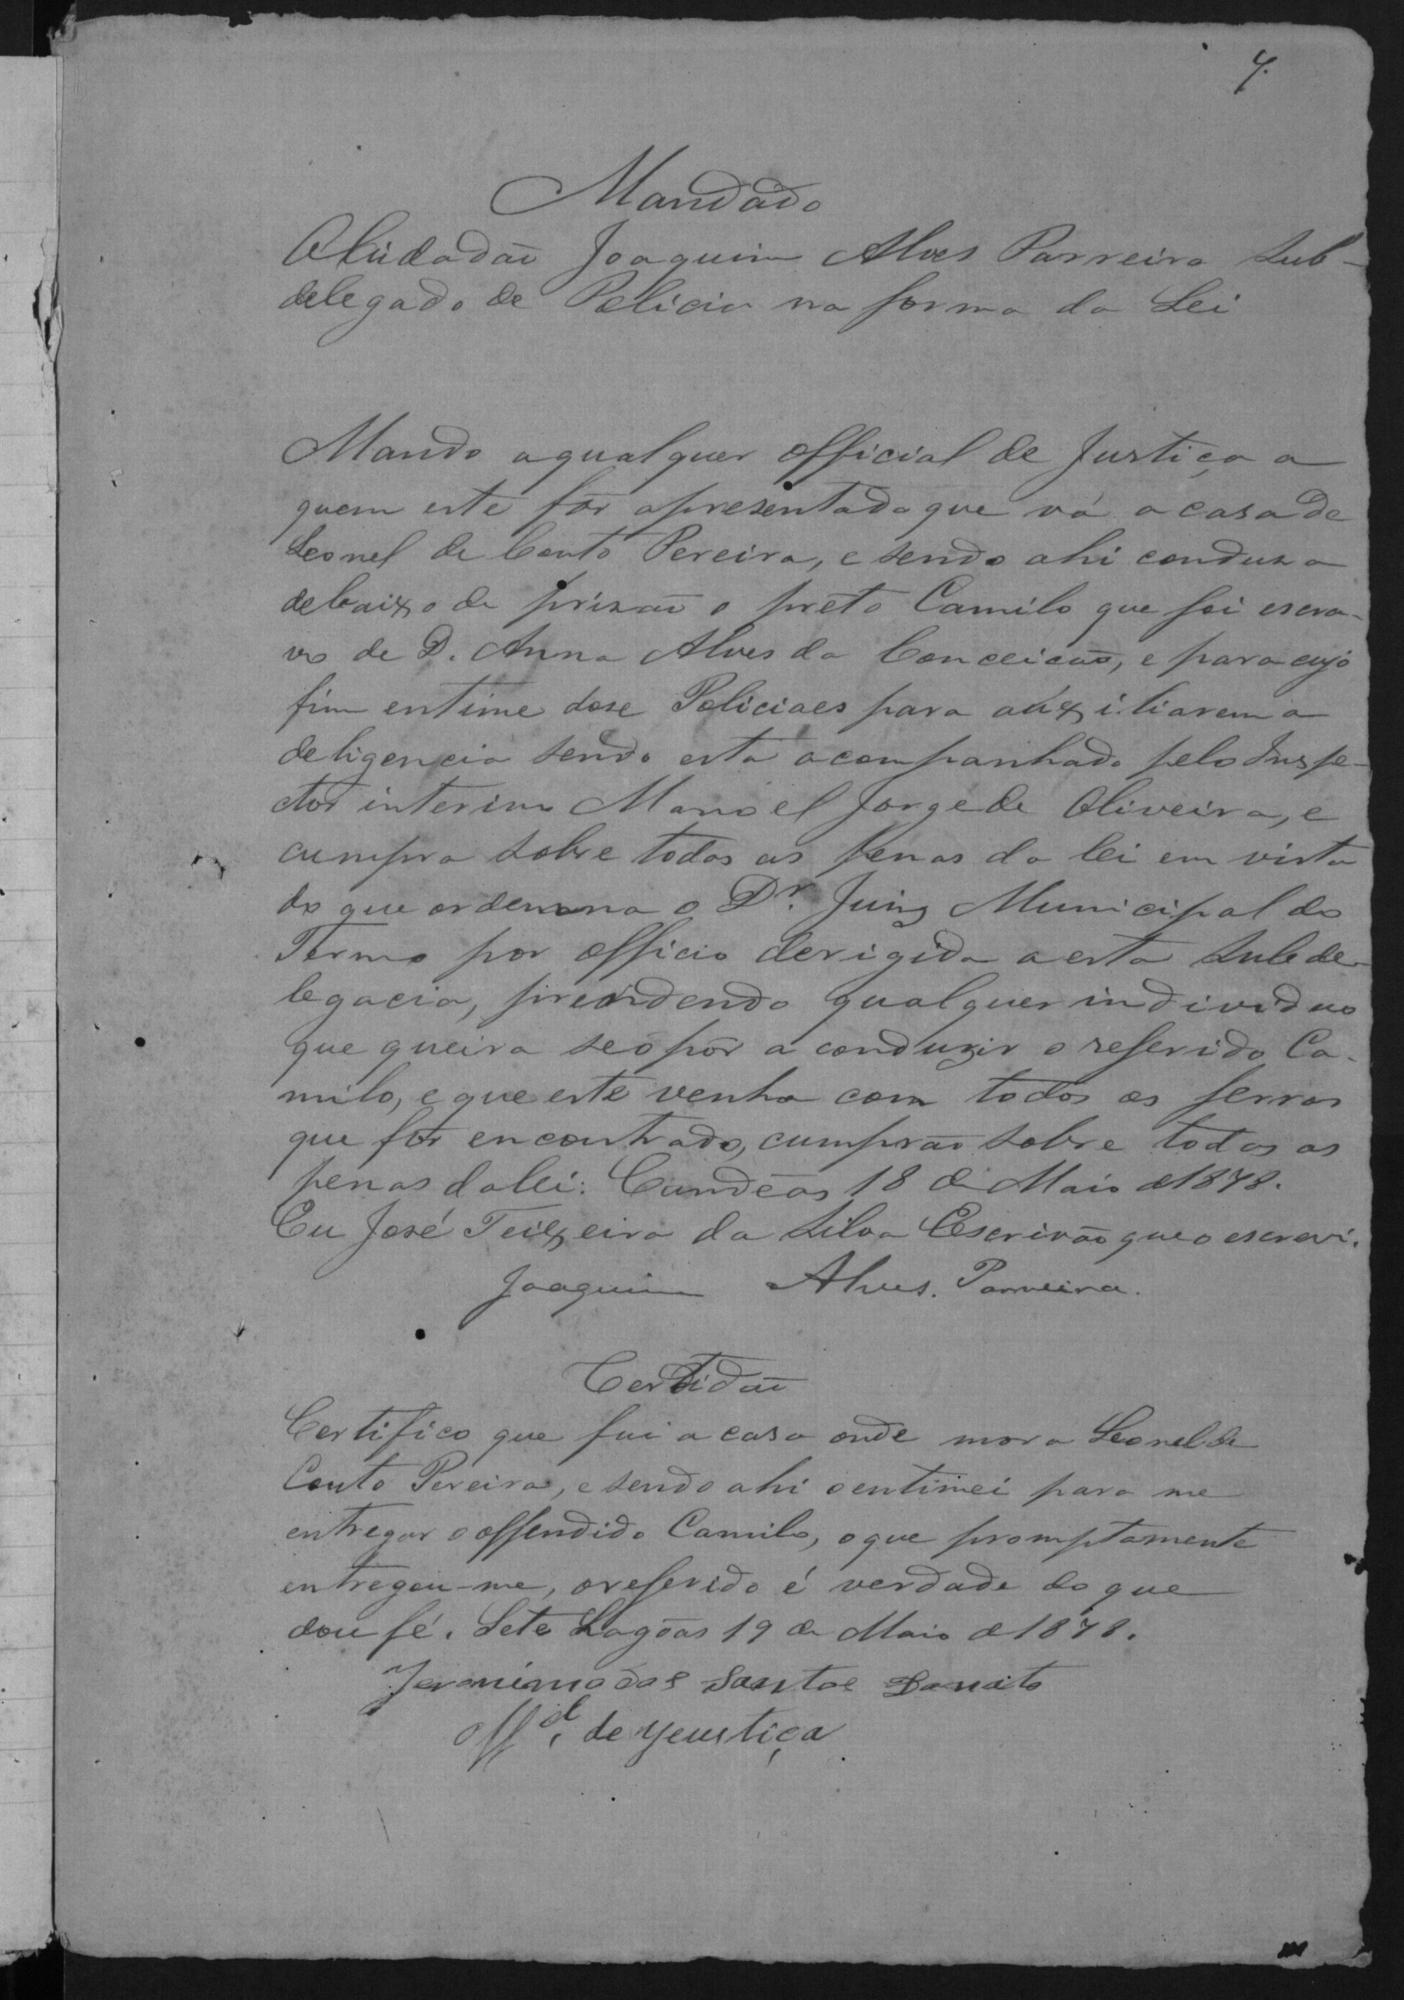 7.
Mandado
O Cidadaõ Joaquim Alves Parreira Sub-
delegado de Policia na forma da Lei
Mando aqualquer official de Justiça a
quem este fôr apresentado que vá a casa de
Leonel de Couto Pereira, e sendo ahi condusa
debaixo de prizaõ o preto Camilo que foi escra-
vo de D. Anna Alves da Conceicaõ, e para cujo
fim entime dose Policiaes para auxiliarem a
deligencia sendo esta acompanhada pelo Inspe-
ctor interino Manoel Jorge de Oliveira, e
cumpra sobre todas as penas da lei em vista
do que ordemna o Dr. Juiz Municipal do
Termo por officio derigido a esta Subde-
legacia, preindendo qualquer individuo
que queira se opôr a conduzir o referido Ca-
milo, e que este venha com todos os ferros
que fôr encontrado, cumprão sobre todas as
penas da lei. 18 de Maio de 1878.
Eu José Teixeira da Silva Escrivão que o escrevi.
Joaquim Alves. Parreira.
Certidaõ
Certifico que fui a casa onde mora Leonel de
Couto Pereira, e sendo ahi o entimei para me
entregar o offendido Camilo, o que promptamente
entregou-me, o referido é verdade do que
dou fé. Sete Lagôas 19 de Maio de 1878.
Jeronimo dos Santos
Offal. de Yeustiça